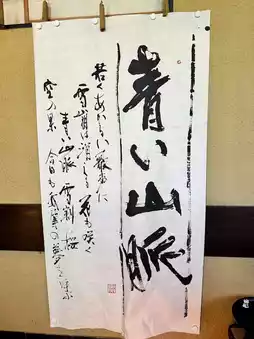 青い山脈
若くあかるい歌声に
雪崩は消える 花も咲く
青い山脈 雪割桜
空の果 今日も我等の夢を呼ぶ